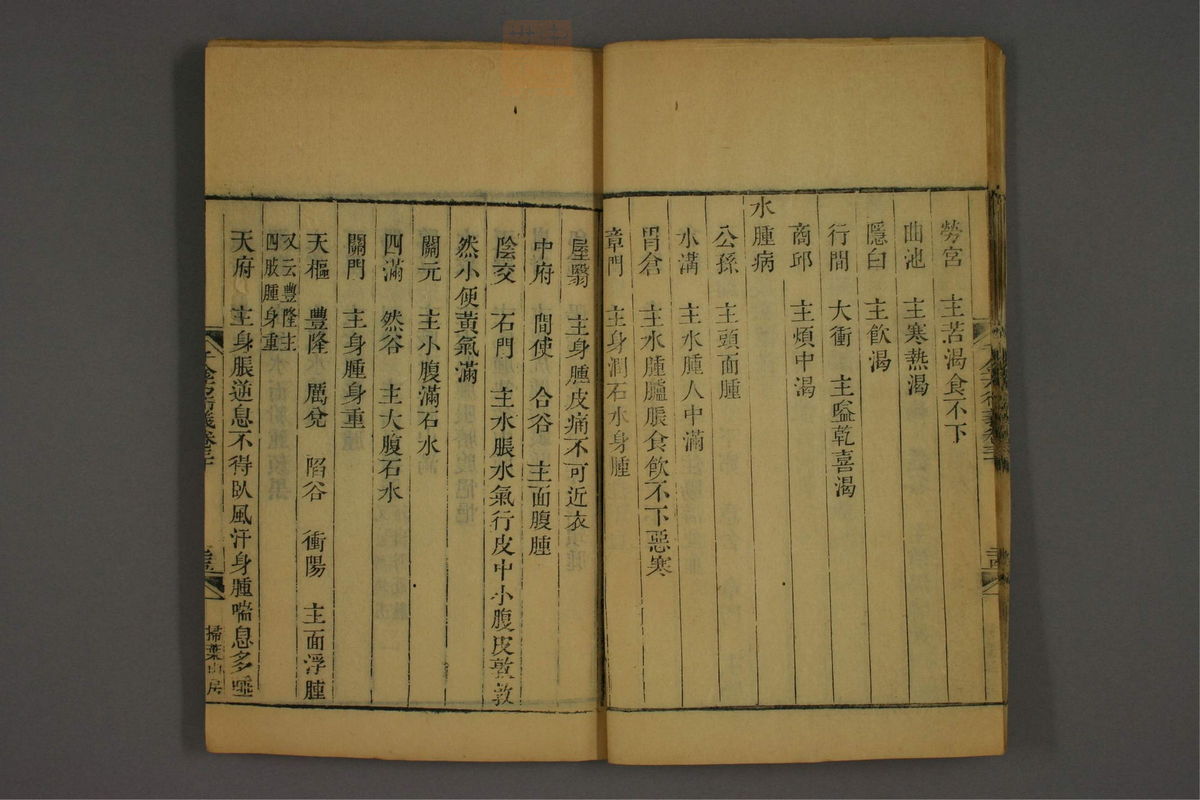 勞宮　主苦渴食不下
曲池　主寒熱渴
隱白　主飲渴
行間　大衝　主嗌乾喜渴
商邱　主煩中渴
水腫病
公孫　主頭面腫
水溝　主水腫人中滿
胃倉　主水腫臚脹食飲不下惡寒
章門　主身潤石水身腫
屋翳　主身腫皮痛不可近衣
中府　間使　合谷　主面腹腫
陰交　石門　主水脹水氣行皮中小腹皮敦敦
然小便黃氣滿
關元　主小腹滿石水
四滿　然谷　主大腹石水
關門　主身腫身重
天樞　豐隆　厲兌　陷谷　衝陽　主面浮腫
又云豐隆主
四肢腫身重
天府　主身脹逆息不得臥風汗身腫喘息多唾
掃葉山房